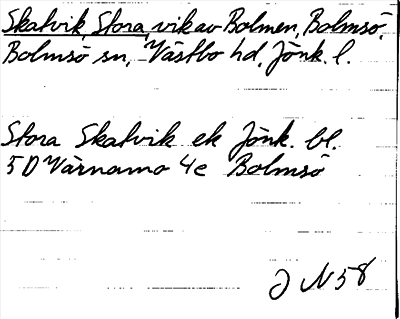 Skatvik, Stora, vik av Bolmen, Bolmsö,
Bolmsö sn, Västbo hd, Jönk. l.
Stora Skatvik ek Jönk. bl.
5 D Värnamo 4e Bolmsö
J N 58